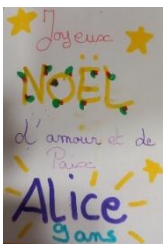 Joyeux
NOËL
d'amour et de
Paix
Alice
9 ans